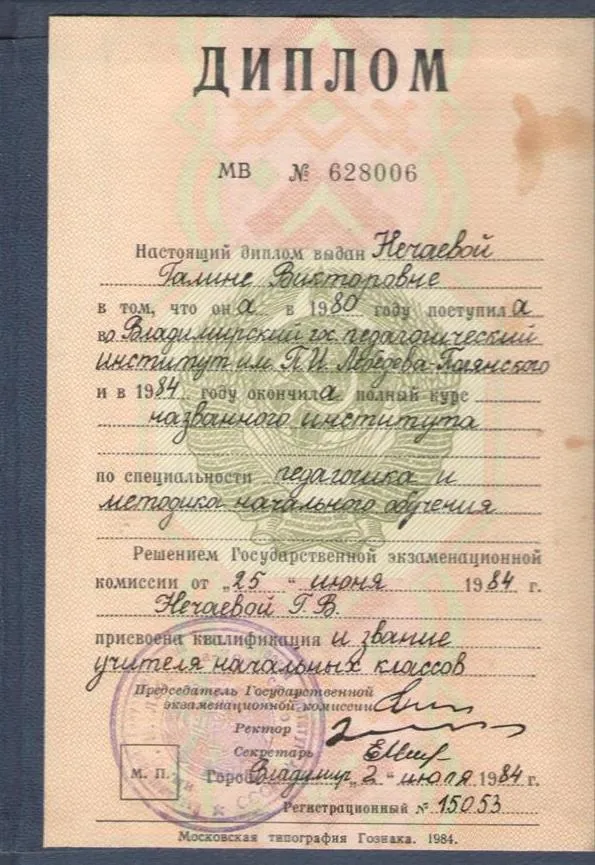 ДИПЛОМ
МВ № 628006
Настоящий диплом выдан Нечаевой
Галине Викторовне
в том, что она в 1980 году поступила
во Владимирский гос. педагогический
институт им. П.И. Лебедева-Полянского
и в 1984 году окончила полный курс
названного института
по специальности педагогика и
методика начального обучения
Решением Государственной экзаменационной
комиссии от „25“ июня 1984 г.
Нечаевой Г.В.
присвоена квалификация и звание
учителя начальных классов
Председатель Государственной
экзаменационной комиссии
Ректор
Секретарь
М. П.
Город Владимир „2“ июля 1984 г.
Регистрационный № 15053
Московская типография Гознака. 1984.